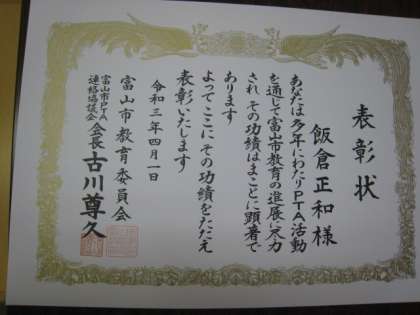 表彰状
飯倉正和様
あなたは多年にわたりPTA活動
を通じて富山市教育の進展に尽力
され その功績はまことに顕著で
あります
よってここに その功績をたたえ
表彰いたします
令和三年四月一日
富山市教育委員会
富山市PTA
連絡協議会
会長 古川尊久